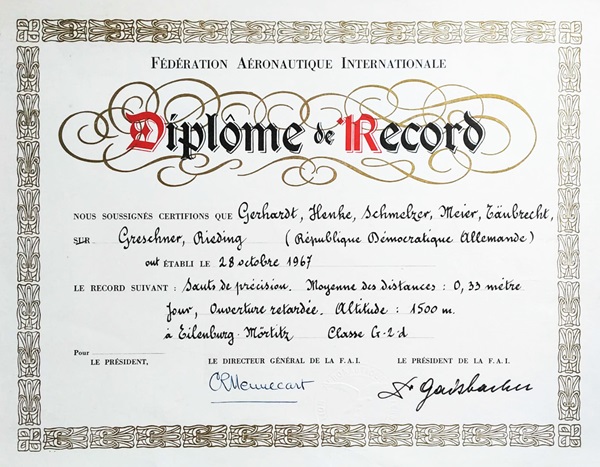 FÉDÉRATION AÉRONAUTIQUE INTERNATIONALE
Diplôme de Record
NOUS SOUSSIGNÉS CERTIFIONS QUE Gerhardt, Henke, Schmelzer, Meier, Täubrecht,
SUR Greschner, Rieding (République Démocratique Allemande)
ont ÉTABLI LE 28 octobre 1967
LE RECORD SUIVANT : Sauts de précision. Moyenne des distances : 0,33 mètre
Jour, Ouverture retardée. Altitude : 1500 m.
à Eilenburg-Mörtitz Classe G-2-d
Pour
LE PRÉSIDENT, LE DIRECTEUR GÉNÉRAL DE LA F.A.I. LE PRÉSIDENT DE LA F.A.I.